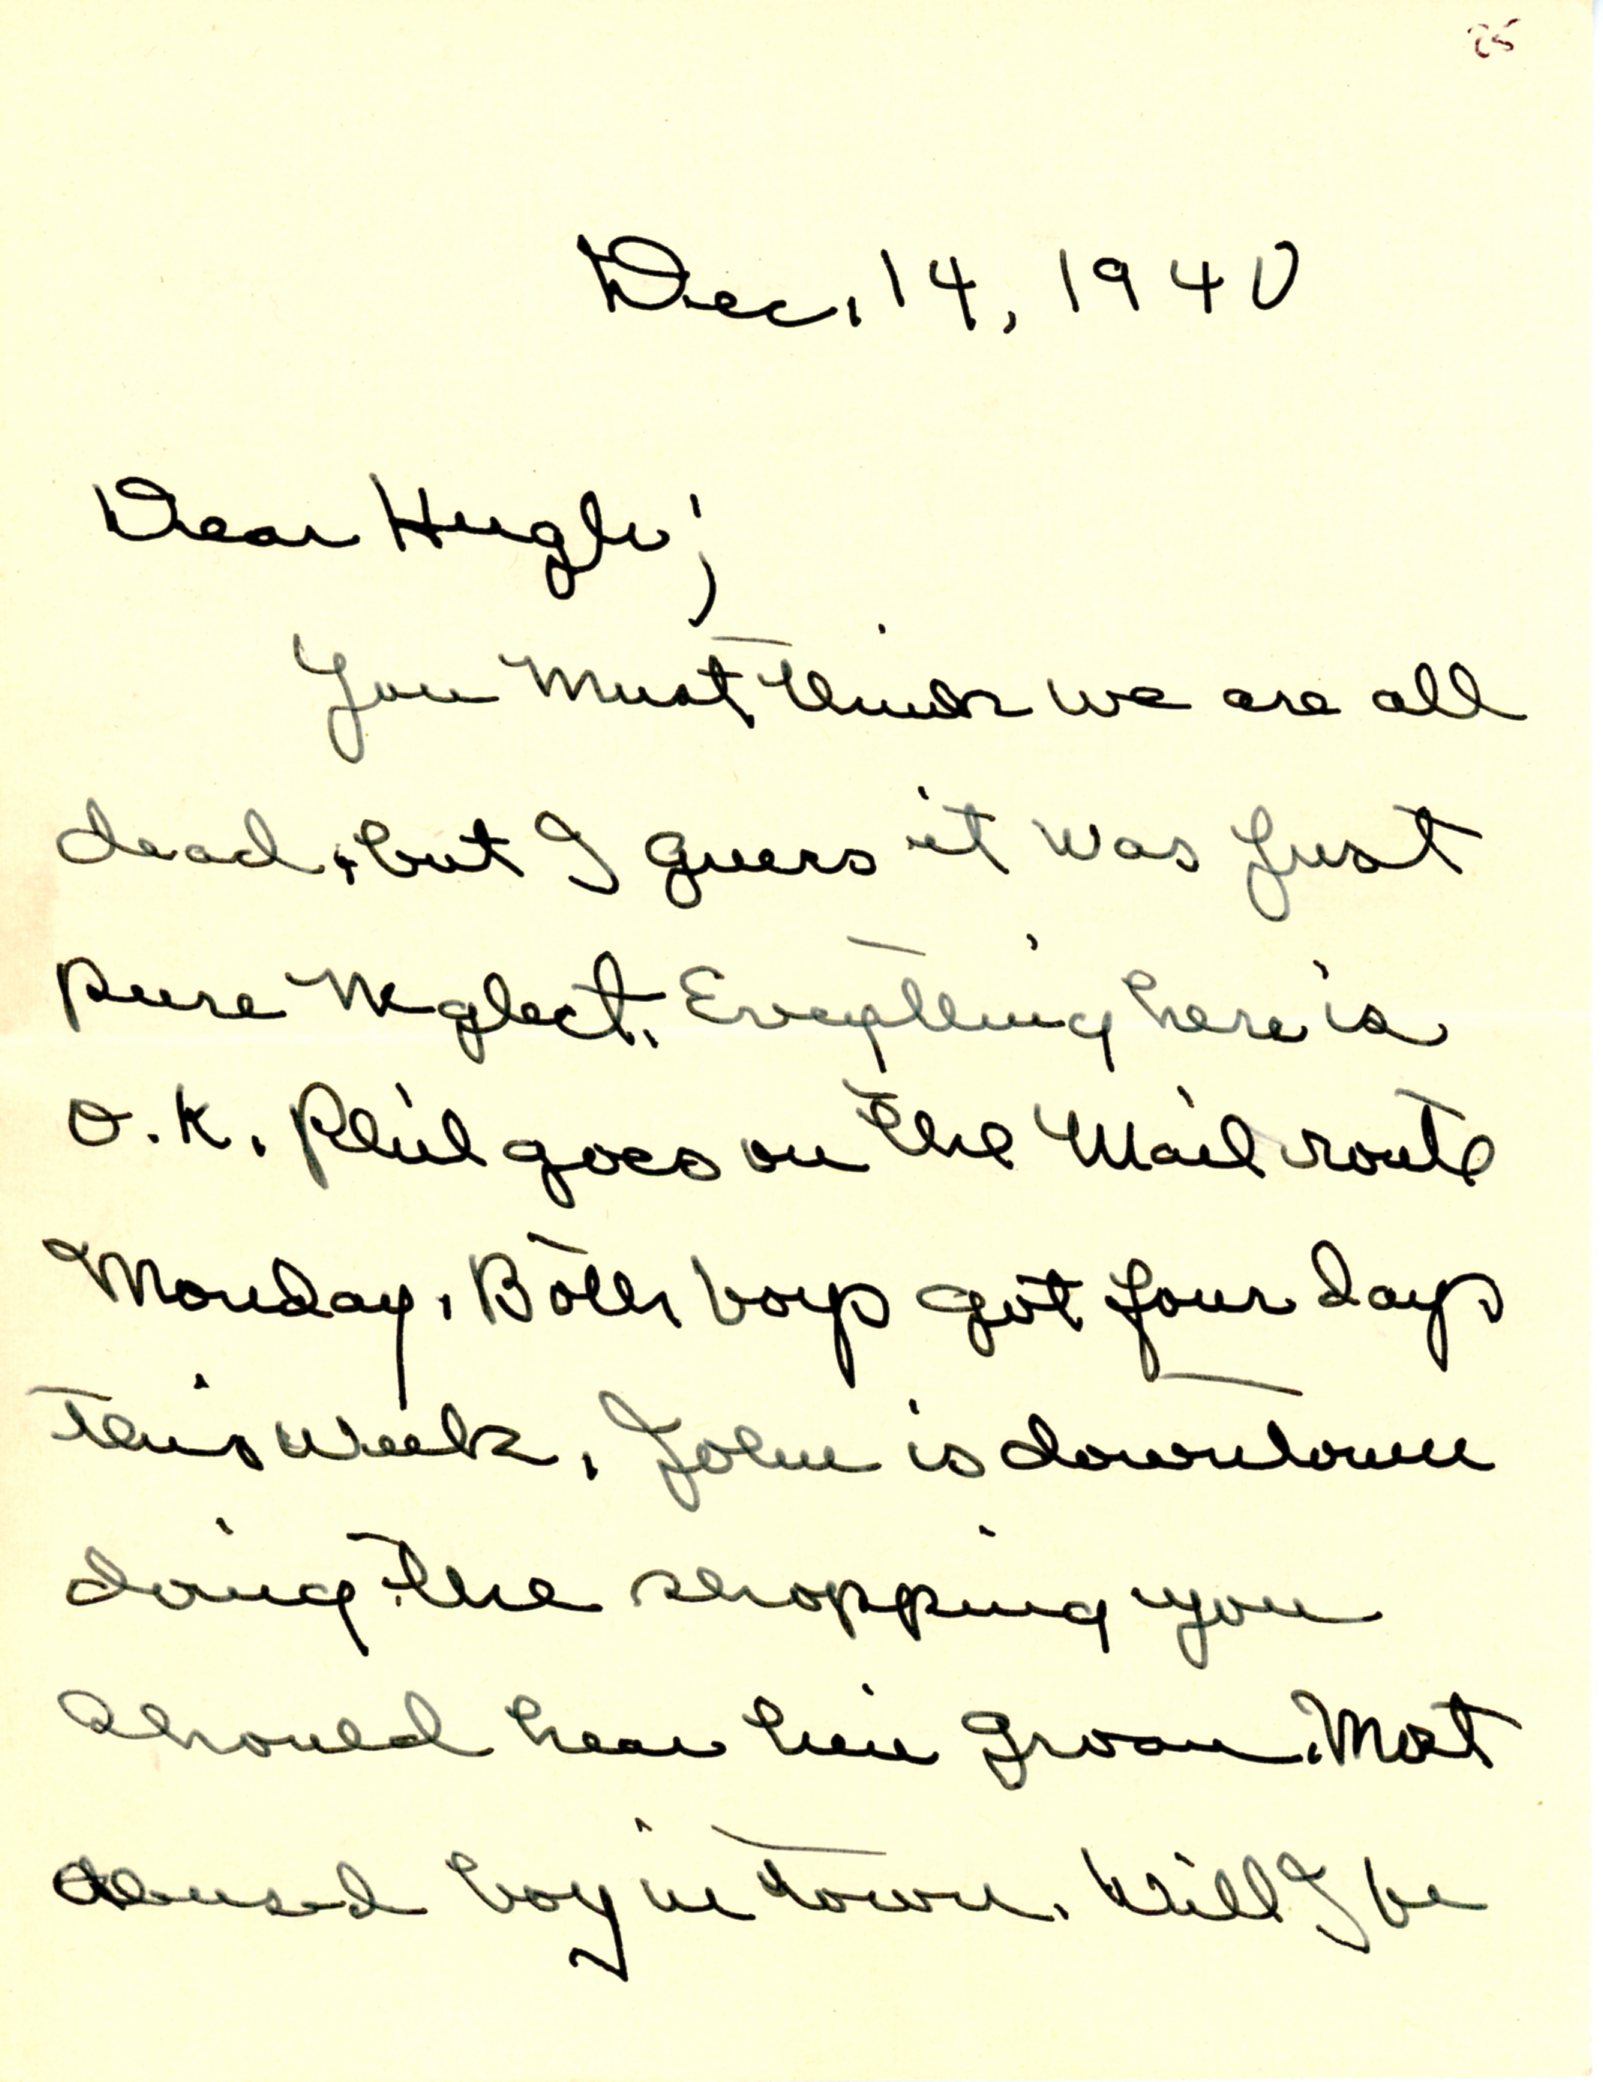 25
Dec. 14, 1940
Dear Hugh;
You must think we are all
dead, but I guess it was just
pure neglect. Everything here is
O.K. Phil goes on the Mail route
Monday. Both boys got four days
this week. John is downtown
doing the shopping you
should hear him groan. Most
abused boy in town. Will I be